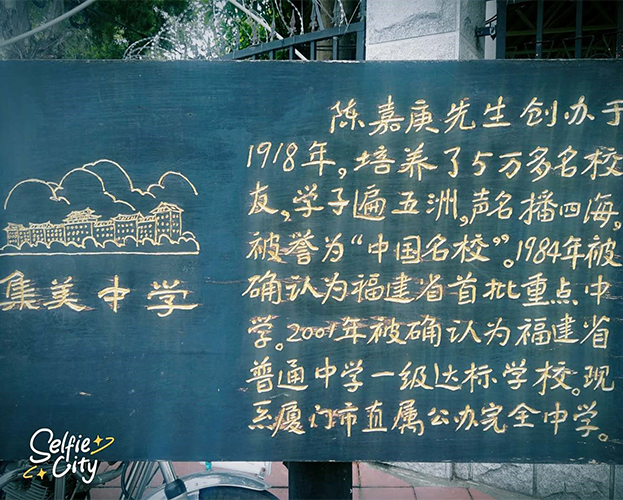 陈嘉庚先生创办于
1918年,培养了5万多名校
友,学子遍五洲,声名播四海,
被誉为“中国名校”。1984年被
确认为福建省首批重点中
学。2001年被确认为福建省
普通中学一级达标学校。现
系厦门市直属公办完全中学。
集美中学
Selfie
City